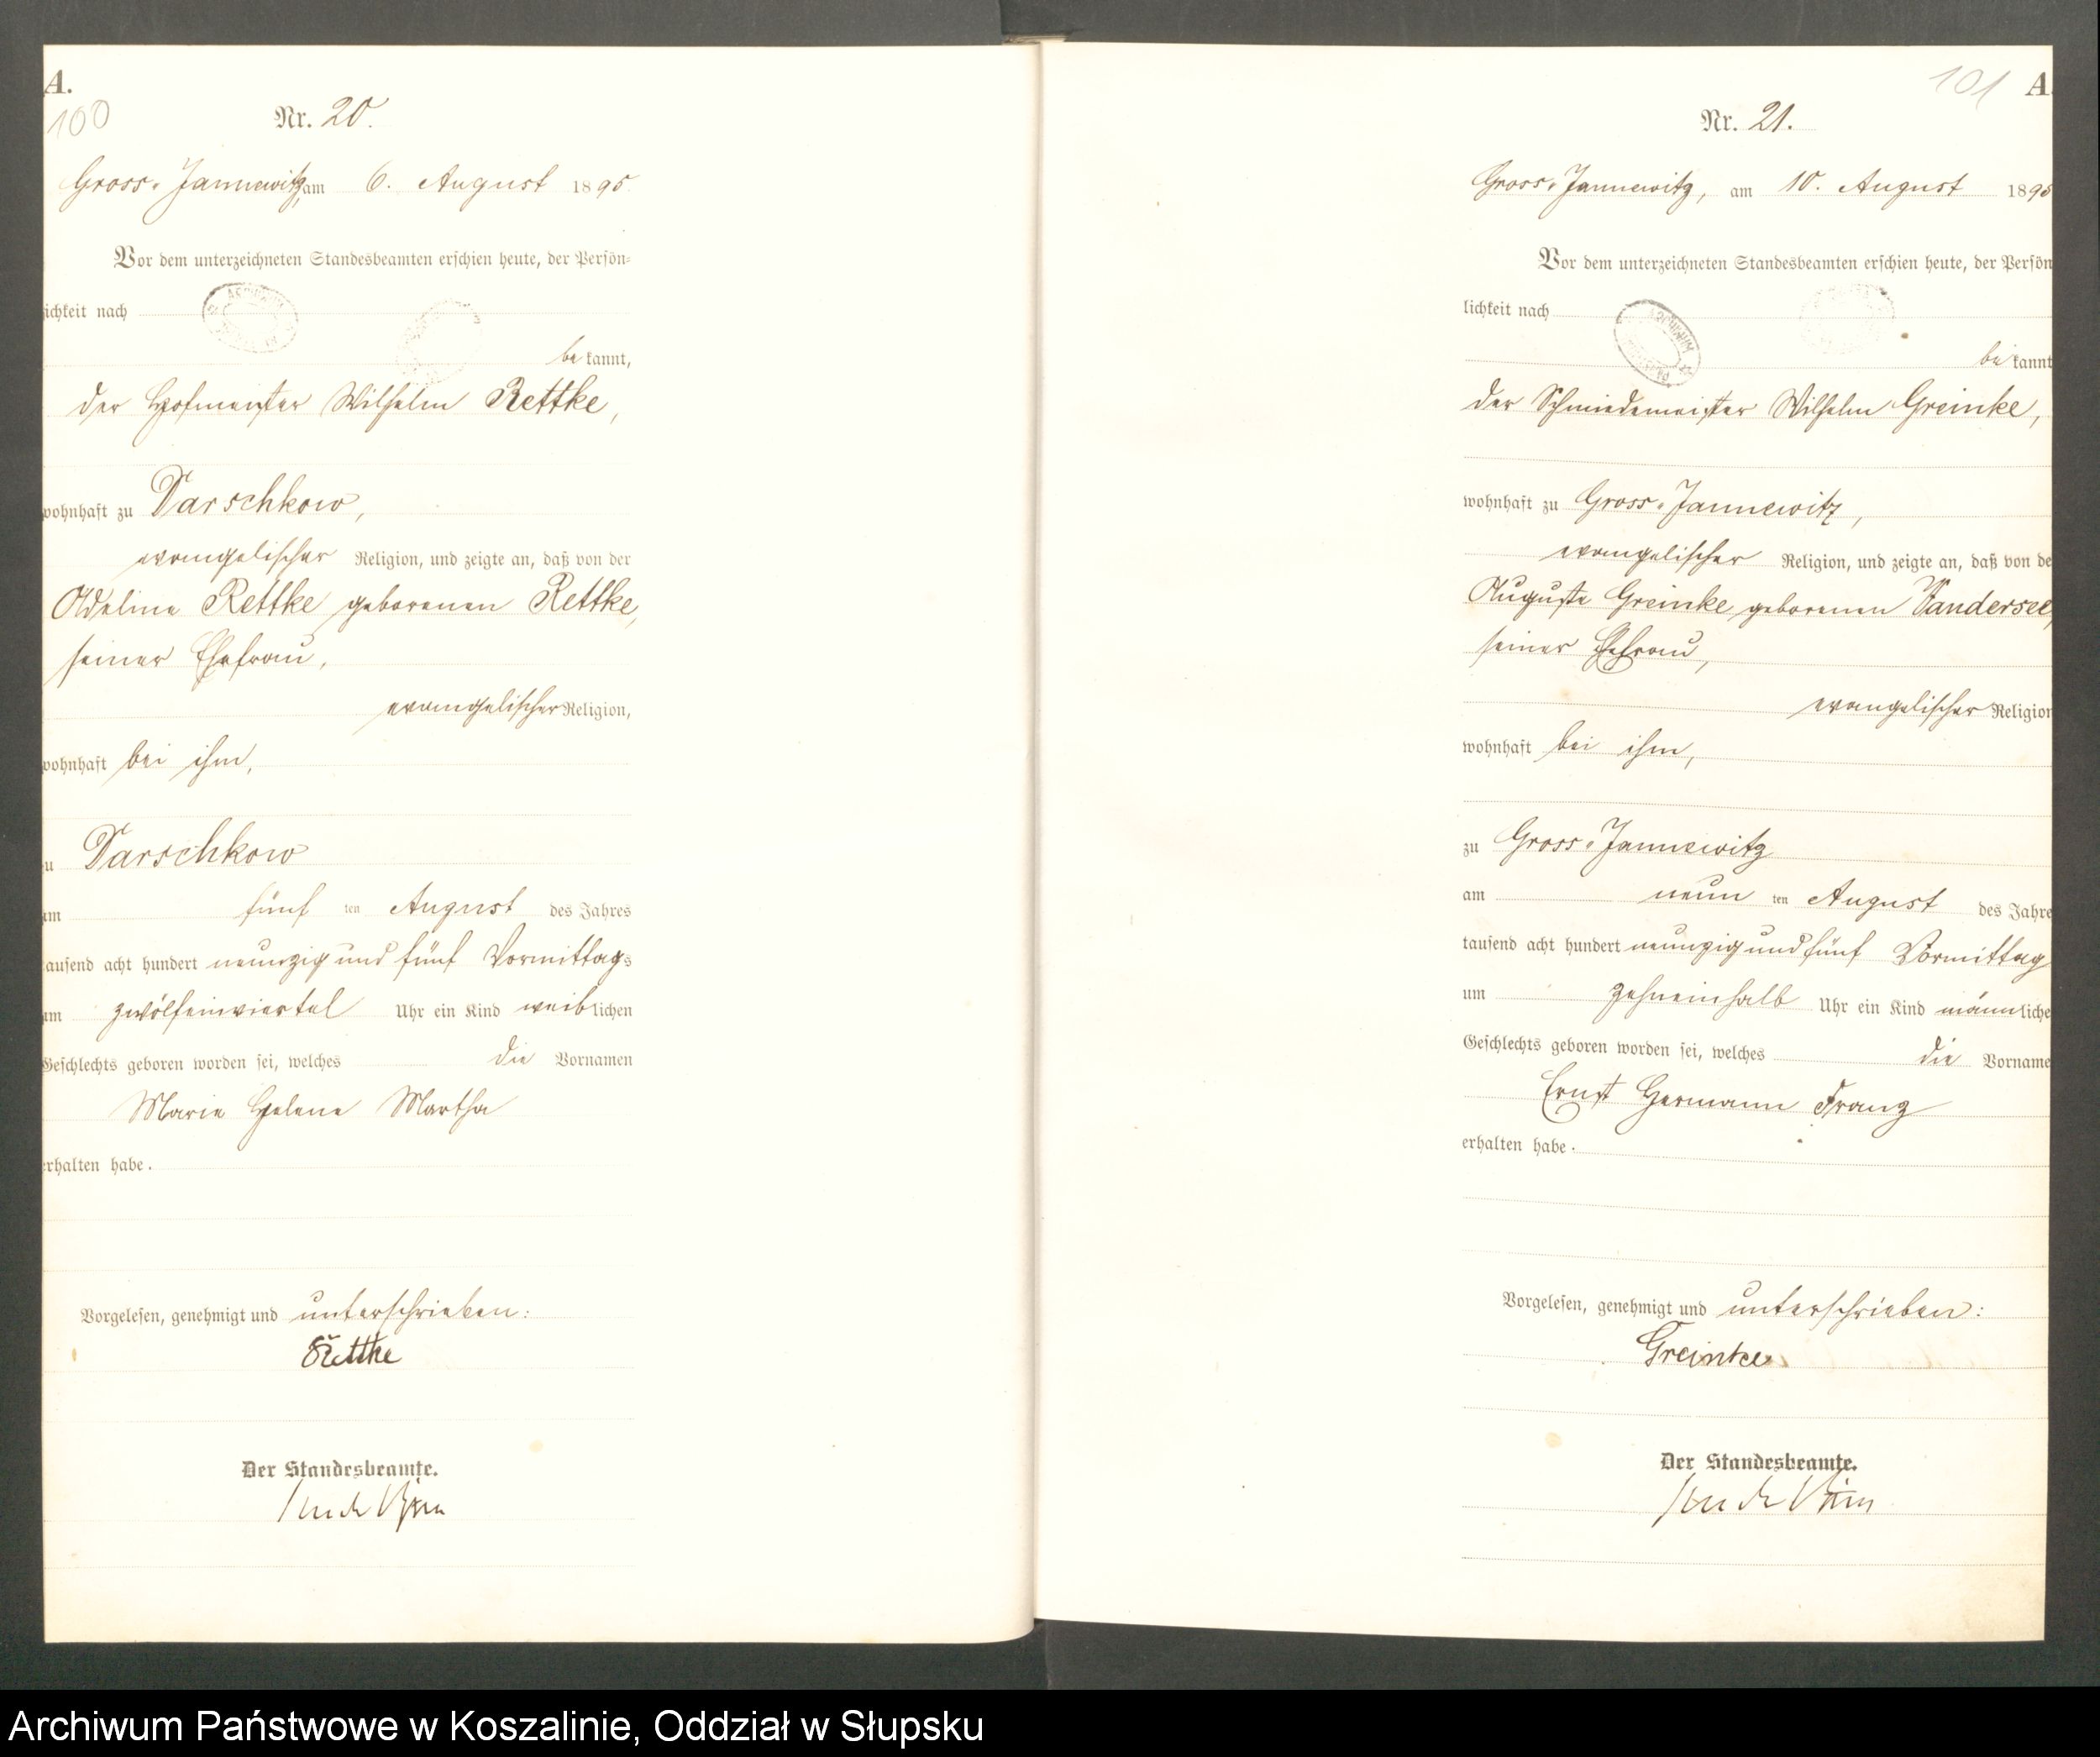 A.
100
Nr. 20.
Gross-Jannewitz, am 6. August 1895.
Vor dem unterzeichneten Standesbeamten erschien heute, der Persön-
lichkeit nach
bekannt,
der Hofmeister Wilhelm Rettke,
wohnhaft zu Darschkow,
evangelischer Religion, und zeigte an, daß von der
Adeline Rettke geborenen Rettke,
seiner Ehefrau,
evangelischer Religion,
wohnhaft bei ihm,
zu Darschkow
am fünf ten August des Jahres
tausend acht hundert neunzig und fünf Vormittags
um zwölfeinviertel Uhr ein Kind weiblichen
Geschlechts geboren worden sei, welches die Vornamen
Marie Helene Martha
erhalten habe.
Vorgelesen, genehmigt und unterschrieben:
Rettke
Der Standesbeamte.
101
A.
Nr. 21.
Gross-Jannewitz, am 10. August 1895
Vor dem unterzeichneten Standesbeamten erschien heute, der Persön
lichkeit nach
bekannt
der Schmiedemeister Wilhelm Greinke,
wohnhaft zu Gross-Jannewitz,
evangelischer Religion, und zeigte an, daß von de
Auguste Greinke geborenen Vandersee,
seiner Ehefrau,
evangelischer Religion
wohnhaft bei ihm,
zu Gross-Jannewitz
am neun ten August des Jahre
tausend acht hundert neunzig und fünf Vormittag
um zehneinhalb Uhr ein Kind männliche
Geschlechts geboren worden sei, welches die Vorname
Ernst Hermann Franz
erhalten habe.
Vorgelesen, genehmigt und unterschrieben:
Greinke
Der Standesbeamte.
Archiwum Państwowe w Koszalinie, Oddział w Słupsku